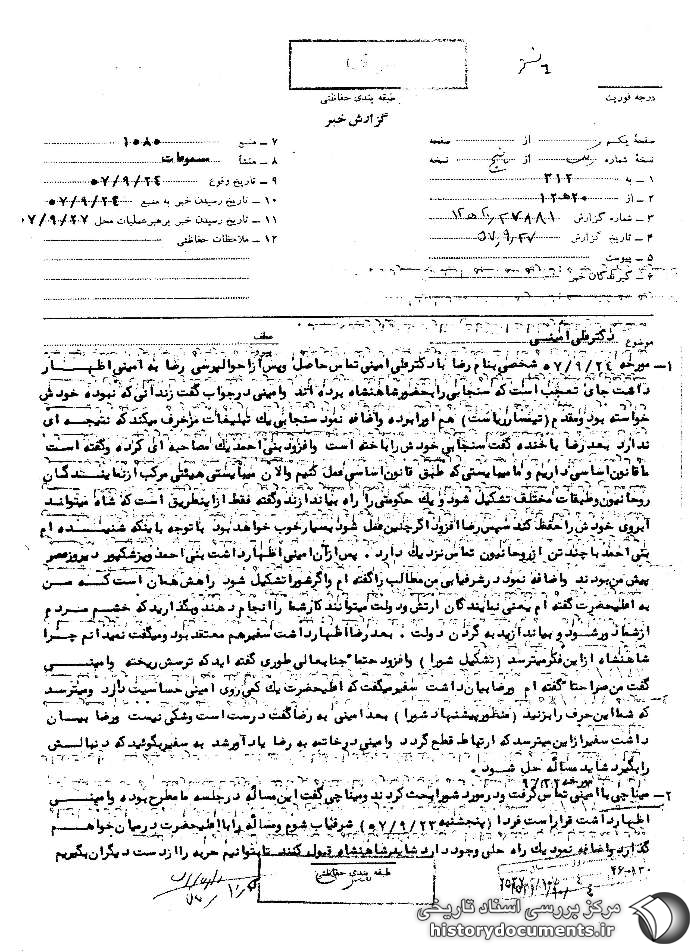 طبقه بندی حفاظتی
درجه فوریت
گزارش خبر
صفحه یکم از صفحه
نسخهٔ شماره از پنج نسخه
۱ ـ به ۳۱۲
۲ ـ از ۲۰ ه‍ ۱۲
۳ ـ شماره گزارش ۲۷۸۸۱ / ۲۰ ه‍ ۱۲
۴ ـ تاریخ گزارش ۵۷/۹/۲۷
۵ ـ پیوست
۶ ـ گیرندگان خبر
۷ ـ منبع ۱۰۸۵
۸ ـ منشأ مسموعات
۹ ـ تاریخ وقوع ۵۷/۹/۲۴
۱۰ ـ تاریخ رسیدن خبر به منبع ۵۷/۹/۲۴
۱۱ ـ تاریخ رسیدن خبر برهبر عملیات محل ۵۷/۹/۲۷
۱۲ ـ ملاحظات حفاظتی
موضوع دکتر علی امینی
۱ـ مورخه ۵۷/۹/۲۴ شخصی بنام رضا با دکتر علی امینی تماس حاصل و پس از احوالپرسی رضا به امینی اظهار
داشت جای تعجب است که سنجابی را بحضور شاهنشاه برده اند و امینی در جواب گفت زندانی که نبوده خودش
خواسته بود و مقدم (تیمسار ریاست) هم او را برده و اضافه نمود سنجابی یک تبلیغات مزخرف میکند که نتیجه ای
ندارد بعد رضا با خنده گفت سنجابی خودش را باخته است و افزود بنی احمد یک مصاحبه ای کرده و گفته است
ما قانون اساسی داریم و ما میبایستی که طبق قانون اساسی عمل کنیم و الان میبایستی هیئتی مرکب از نمایندگان
روحانیون و طبقات مختلف تشکیل شود و یک حکومتی را راه بیاندازند و گفته فقط از این طریق است که شاه میتواند
آبروی خودش را حفظ کند سپس رضا افزود اگر چنین عمل شود بسیار خوب خواهد بود با توجه باینکه شنیده ام
بنی احمد با چند تن از روحانیون تماس نزدیک دارد . پس از آن امینی اظهار داشت بنی احمد و پزشکپور دیروز عصر
پیش من بودند و اضافه نمود در شرفیابی من مطالب را گفته ام و اگر شورا تشکیل شود راهش همان است که من
به اعلیحضرت گفته ام یعنی نمایندگان ارتش و دولت میتوانند کار شما را انجام دهند و بگذارید که خشم مردم
از شما دور شود و بیاندازید به گردن دولت . بعد رضا اظهار داشت سفیر هم معتقد بود و میگفت نمیدانم چرا
شاهنشاه از این فکر میترسد (تشکیل شورا) و افزود حتماً جنابعالی طوری گفته اید که ترسش ریخته و امینی
گفت من صراحتا گفته ام و رضا بیان داشت سفیر میگفت که اعلیحضرت یک کمی روی امینی حساسیت دارد و میترسد
که شما این حرف را بزنید (منظور پیشنهاد شورا) بعد امینی به رضا گفت درست است و شکی نیست و رضا بیان
داشت سفیر از این میترسد که ارتباط قطع گردد و امینی در خاتمه به رضا یادآور شد به سفیر بگوئید که دنبالش
را بگیرد شاید مسأله حل شود .
۲ـ میناچی با امینی تماس گرفت و در مورد شورا بحث کردند و میناچی گفت این مسأله در جلسه ما مطرح بوده و امینی
مورخه ۹/۲۲
اظهار داشت قرار است فردا (پنجشنبه ۵۷/۹/۲۳) شرفیاب شوم و مسأله را با اعلیحضرت در میان خواهم
گذارد و اضافه نمود یک راه حلی وجود دارد شاید شاهنشاه قبول کنند تا بتوانیم حربه را از دست دیگران بگیریم
طبقه بندی حفاظتی
۲۶-۱۳۰
مرکز بررسی اسناد تاریخی
historydocuments.ir